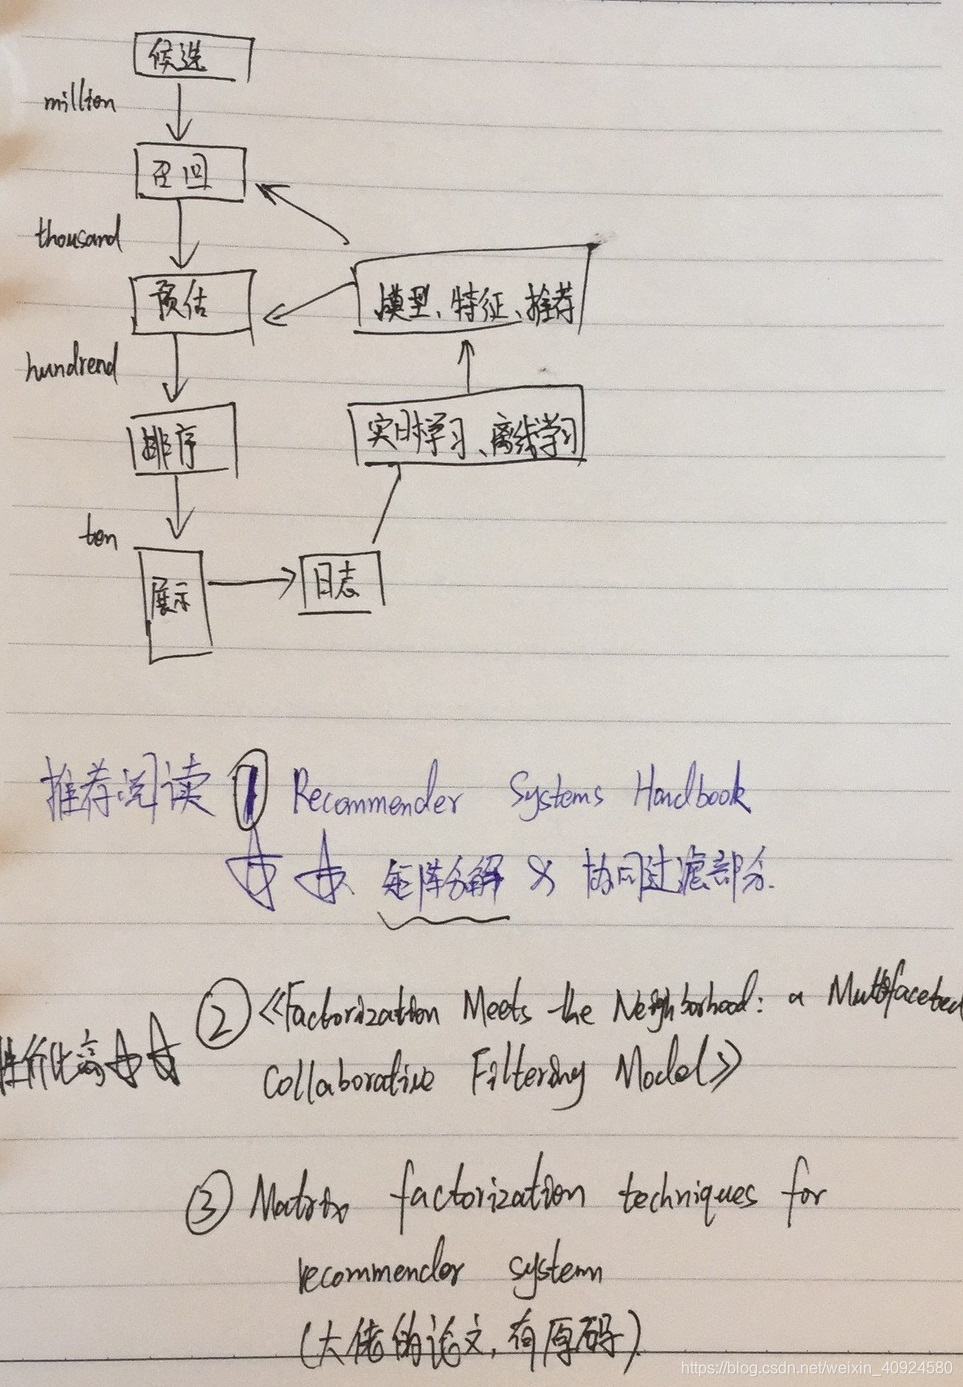 候选
million
召回
thousand
预估
模型、特征、推荐
hundrend
排序
实时学习、离线学习
ten
展示
日志
推荐阅读 ① Recommender Systems Handbook
☆ ☆ 矩阵分解 & 协同过滤部分.
② 《Factorization Meets the Neighborhood: a Multifaceted
性价比高 ☆ ☆
Collaborative Filtering Model》
③ Matrix factorization techniques for
recommender system
(大佬的论文,有原码)
https://blog.csdn.net/weixin_40924580